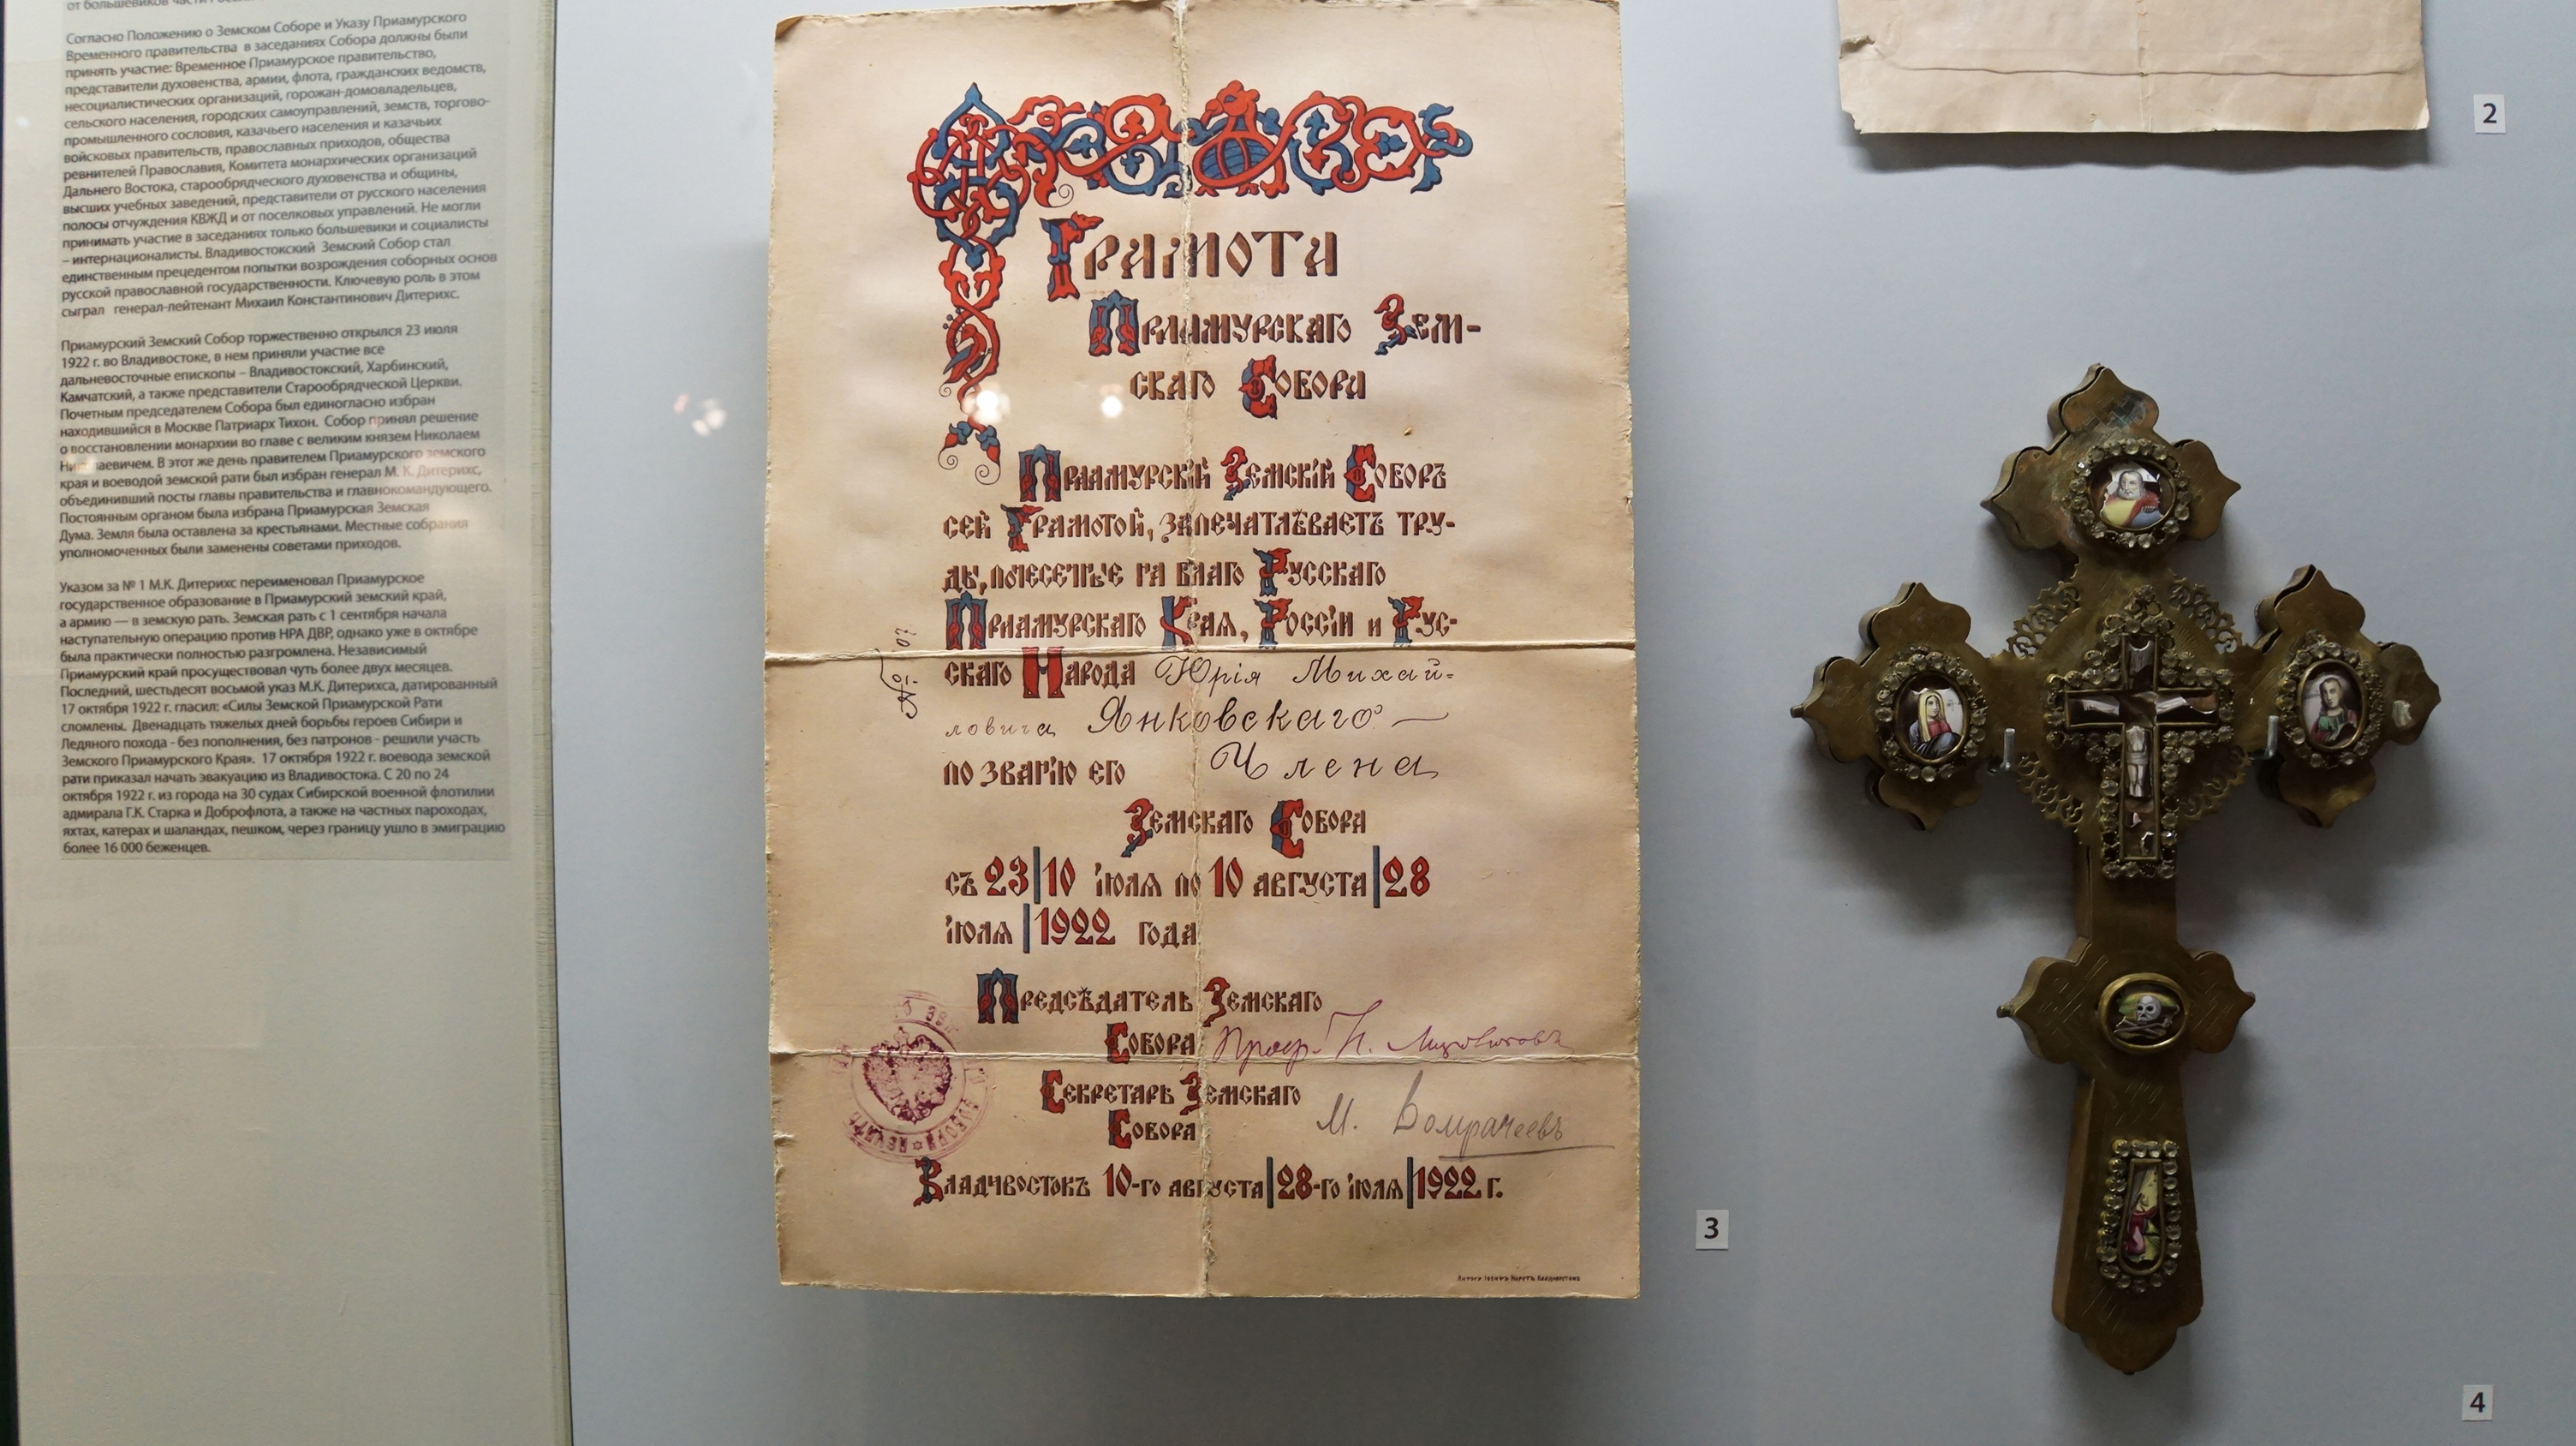 Согласно Положению о Земском Соборе и Указу Приамурского
Временного правительства в заседаниях Собора должны были
принять участие: Временное Приамурское правительство,
представители духовенства, армии, флота, гражданских ведомств,
несоциалистических организаций, горожан-домовладельцев,
сельского населения, городских самоуправлений, земств, торгово-
промышленного сословия, казачьего населения и казачьих
войсковых правительств, православных приходов, общества
ревнителей Православия, Комитета монархических организаций
Дальнего Востока, старообрядческого духовенства и общины,
высших учебных заведений, представители от русского населения
полосы отчуждения КВЖД и от поселковых управлений. Не могли
принимать участие в заседаниях только большевики и социалисты
– интернационалисты. Владивостокский Земский Собор стал
единственным прецедентом попытки возрождения соборных основ
русской православной государственности. Ключевую роль в этом
сыграл генерал-лейтенант Михаил Константинович Дитерихс.
Приамурский Земский Собор торжественно открылся 23 июля
1922 г. во Владивостоке, в нем приняли участие все
дальневосточные епископы – Владивостокский, Харбинский,
Камчатский, а также представители Старообрядческой Церкви.
Почетным председателем Собора был единогласно избран
находившийся в Москве Патриарх Тихон. Собор принял решение
о восстановлении монархии во главе с великим князем Николаем
Николаевичем. В этот же день правителем Приамурского земского
края и воеводой земской рати был избран генерал М. К. Дитерихс,
объединивший посты главы правительства и главнокомандующего.
Постоянным органом была избрана Приамурская Земская
Дума. Земля была оставлена за крестьянами. Местные собрания
уполномоченных были заменены советами приходов.
Указом за № 1 М.К. Дитерихс переименовал Приамурское
государственное образование в Приамурский земский край,
а армию — в земскую рать. Земская рать с 1 сентября начала
наступательную операцию против НРА ДВР, однако уже в октябре
была практически полностью разгромлена. Независимый
Приамурский край просуществовал чуть более двух месяцев.
Последний, шестьдесят восьмой указ М.К. Дитерихса, датированный
17 октября 1922 г. гласил: «Силы Земской Приамурской Рати
сломлены. Двенадцать тяжелых дней борьбы героев Сибири и
Ледяного похода - без пополнения, без патронов - решили участь
Земского Приамурского Края». 17 октября 1922 г. воевода земской
рати приказал начать эвакуацию из Владивостока. С 20 по 24
октября 1922 г. из города на 30 судах Сибирской военной флотилии
адмирала Г.К. Старка и Доброфлота, а также на частных пароходах,
яхтах, катерах и шаландах, пешком, через границу ушло в эмиграцию
более 16 000 беженцев.
Грамота
Приамурскаго Зем-
скаго Собора
Приамурскій Земскій Соборъ
сей Грамотой, запечатлѣваетъ тру-
ды, понесенные на благо Русскаго
Приамурскаго Края, Россіи и Рус-
скаго Народа Юрія Михай-
ловича Янковскаго —
по званію его Члена
Земскаго Собора
съ 23|10 іюля по 10 августа|28
іюля|1922 года
Предсѣдатель Земскаго
Собора Проф. Н.
Секретарь Земскаго
Собора М.
Владивостокъ 10-го августа|28-го іюля|1922 г.
2
3
4